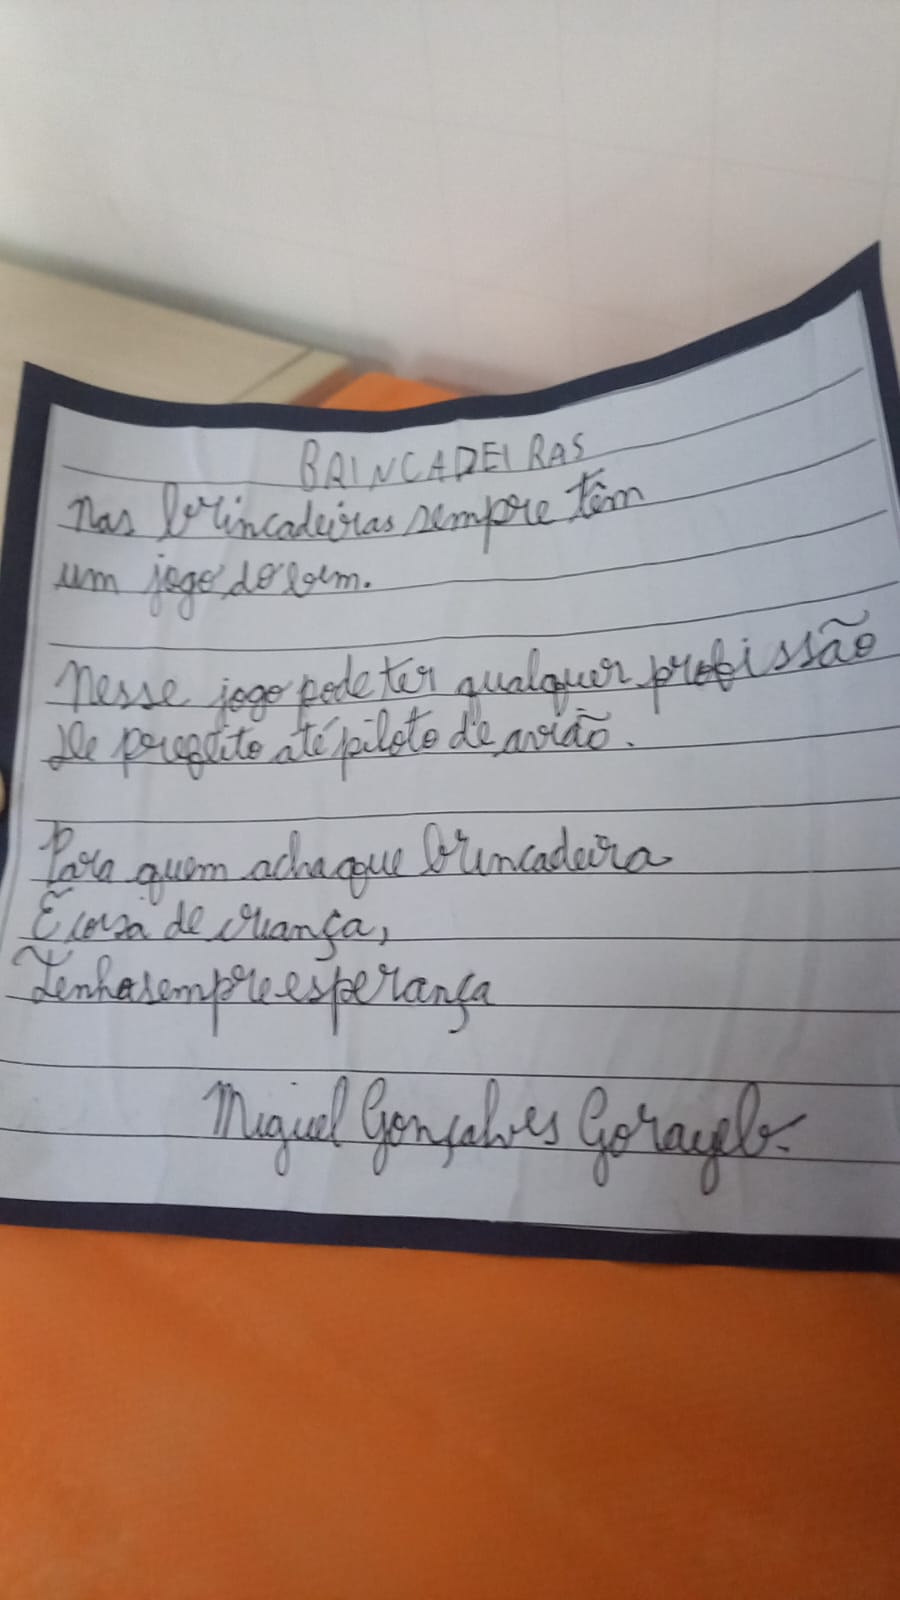 BRINCADEIRAS
Nas brincadeiras sempre têm
um jogo do bem.
Nesse jogo pode ter qualquer profissão
De prefeito até piloto de avião.
Para quem acha que brincadeira
É coisa de criança,
Tenha sempre esperança
Miguel Gonçalves Gorayeb